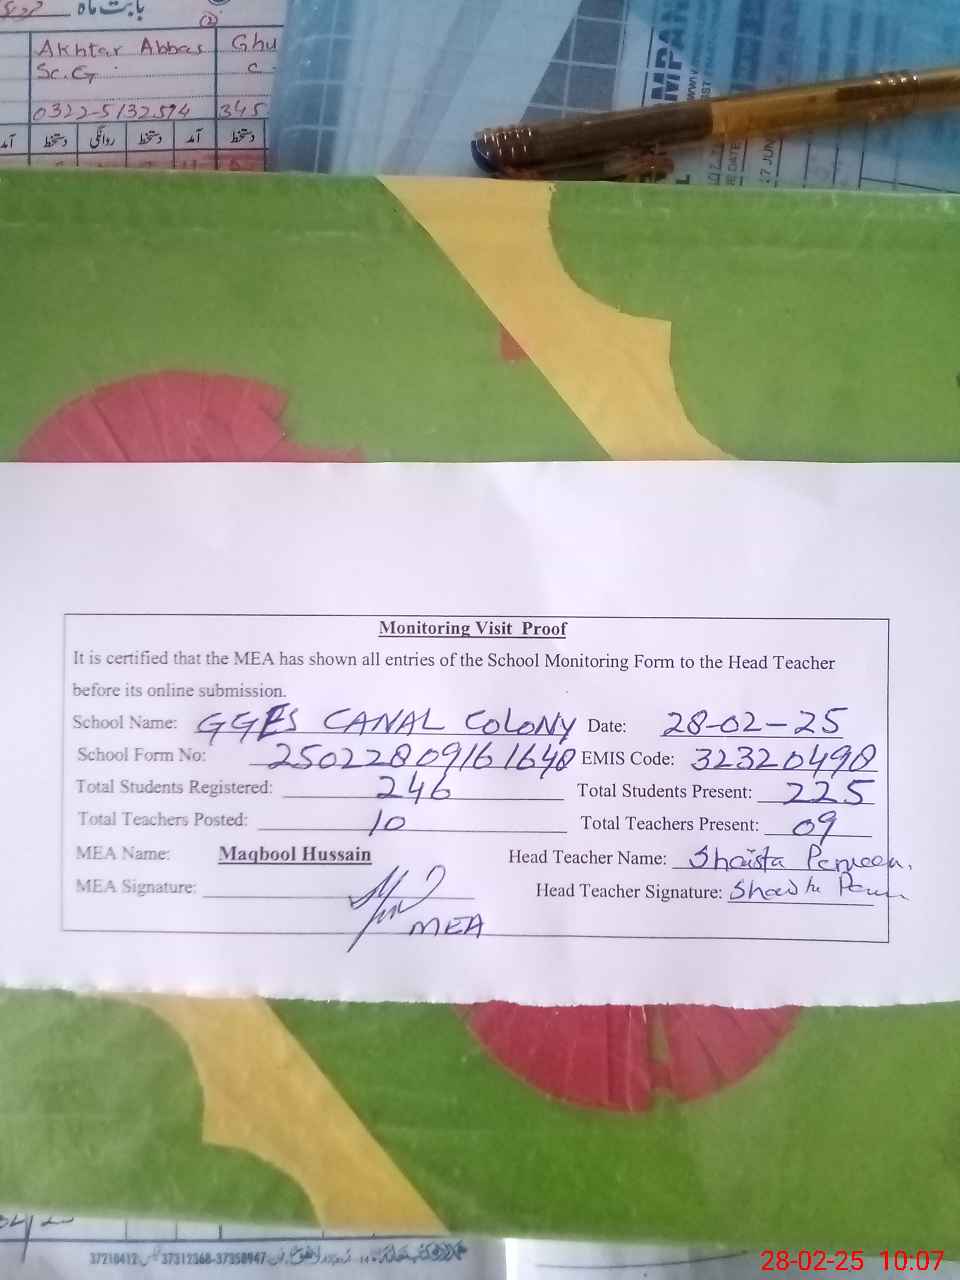 بابت ماہ
Akhtar Abbas Ghu
Sc.G c
0322-5132574 345
آمد دستخط روانگی دستخط آمد دستخط
MPAN
www.
7 JUN
Monitoring Visit Proof
It is certified that the MEA has shown all entries of the School Monitoring Form to the Head Teacher
before its online submission.
School Name: GGES CANAL COLONY Date: 28-02-25
School Form No: 25022809161640 EMIS Code: 32320490
Total Students Registered: 246 Total Students Present: 225
Total Teachers Posted: 10 Total Teachers Present: 09
MEA Name: Maqbool Hussain Head Teacher Name: Shaista Perveen.
MEA Signature: Head Teacher Signature: Shaista
MEA
37210412 37312368-37350947
28-02-25 10:07